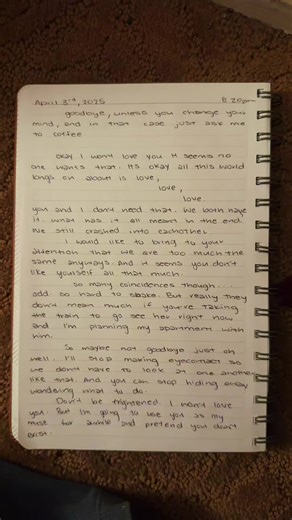 April 3rd, 2025 8:20pm
goodbye, unless you change your
mind, and in that case just ask me
to coffee
okay I won't love you it seems no
one wants that. Its okay all this world
longs on about is love,
love,
love.
you and I don't need that. We both have
it. what has it all meant in the end.
We still crashed into eachother
I would like to bring to your
attention that we are too much the
same anyways. And it seems you don't
like yourself all that much.
so many coincidences though...
odd. so hard to shake. But really they
don't mean much if you're taking
the train to go see her right now
and I'm planning my apartment with
him.
So maybe not goodbye just oh
well. I'll stop making eyecontact so
we don't have to look at one another
like that. And you can stop hiding away
wondering what to do.
Don't be frightened. I won't love
you. But I'm going to use you as my
muse for awhile and pretend you don't
exist.